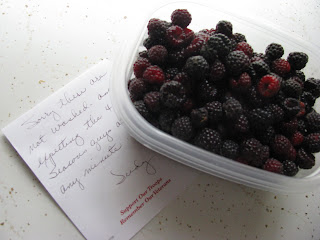 Sorry these are
not washed. am
expecting the 4
Seasons guys a
any minute
Sindy
Support Our Troops
Remember Our Veterans